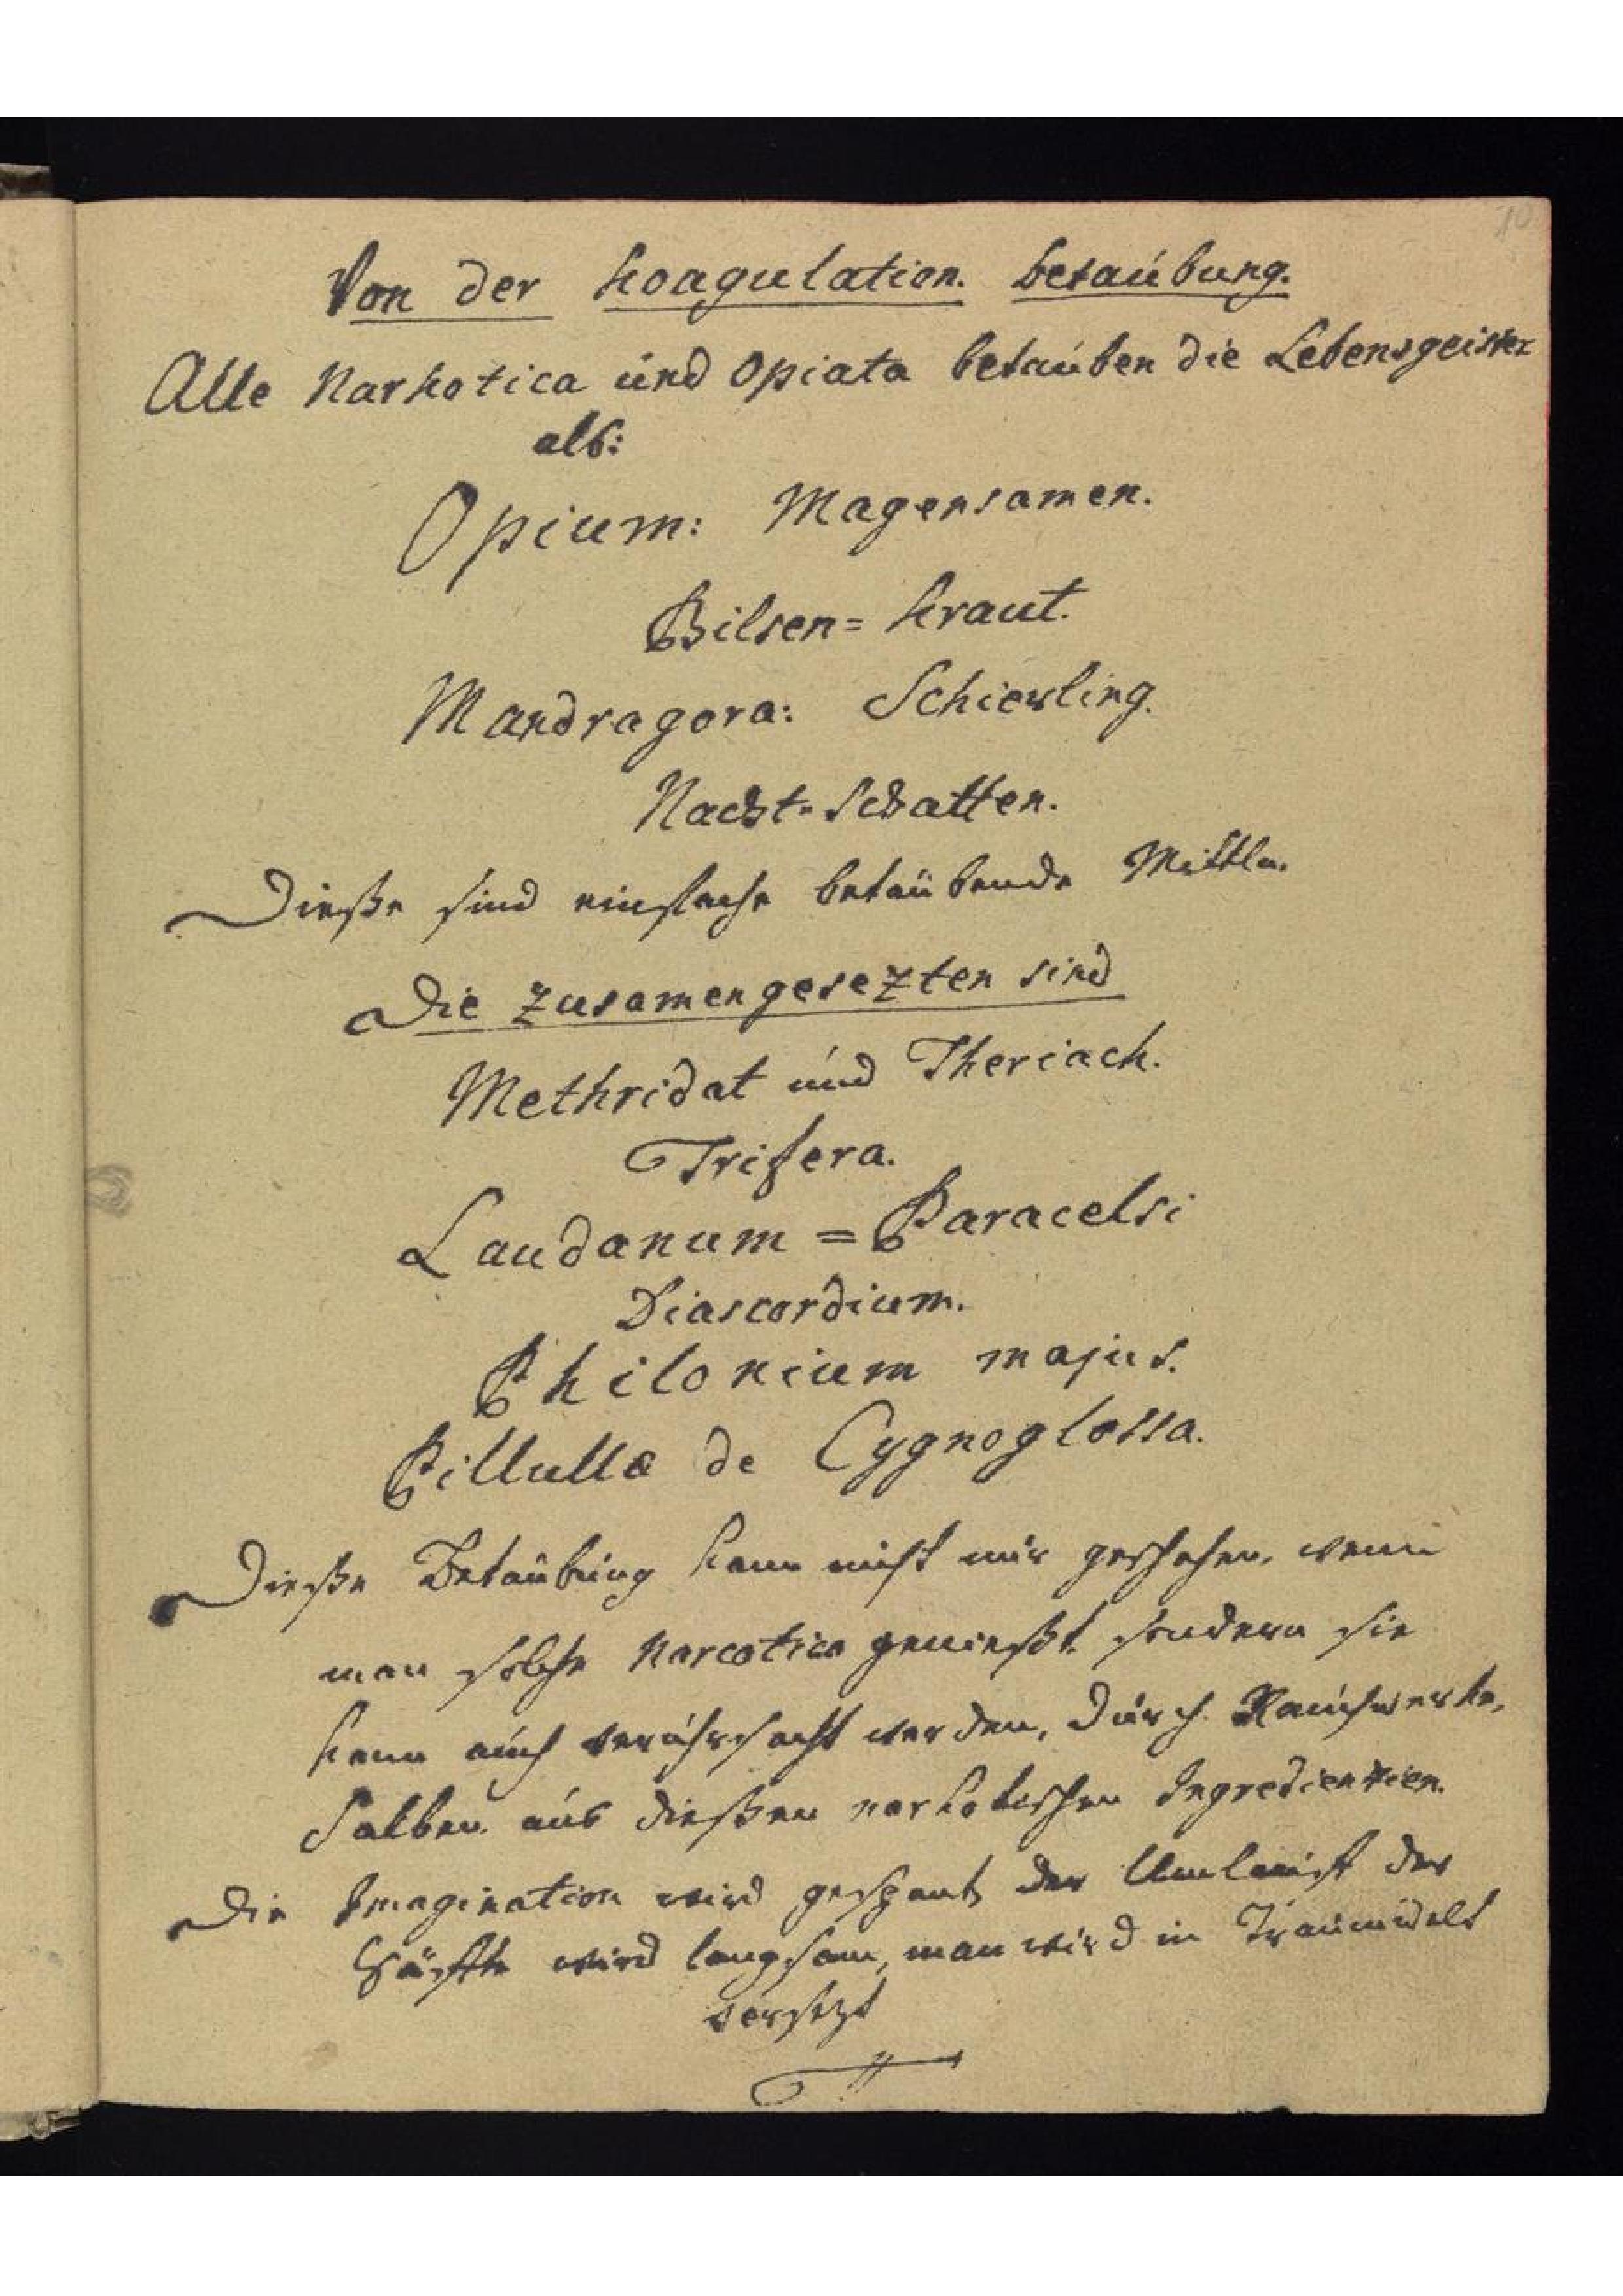 10
Von der Koagulation. betaúbung.
Alle Narkotica únd Opiata betaúben die Lebensgeister
als:
Opium: Magensamen.
Bilsen= Kraut.
Mandragora: Schierling.
Nacht=Schatten.
Dieße sind einfache betaübende Mittln.
Die zusamengesezten sind
Methridat únd Theriack.
Trifera.
Laudanum = Paracelsi
Diascordium.
Philonium majus.
Pillullæ de Cygnoglossa.
Dieße Betaúbúng kann nicht núr geschehen, wenn
man solche Narcotica genießt, sondern sie
kann aúch verúhrsacht werden, dúrch Raúchwerke,
Salben aús dießen narkotischen Ingredientien.
Die Imagination wird gespant, der Umlaúf der
Säfte wird langsam, man wird in Traúmwelt
versezt